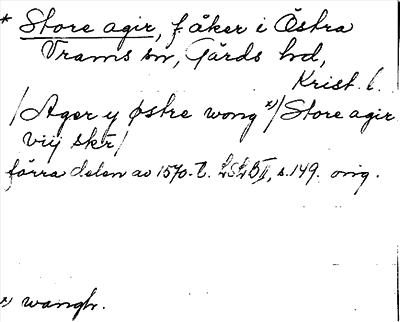 * Store agir, f. åker i Östra
Vrams sn, Gärds hd,
Krist. l.
/Ager y østre wong x)/Store agir
viij skr/
förra delen av 1570-t. LSLB II, s. 149. orig.
x) wangh.